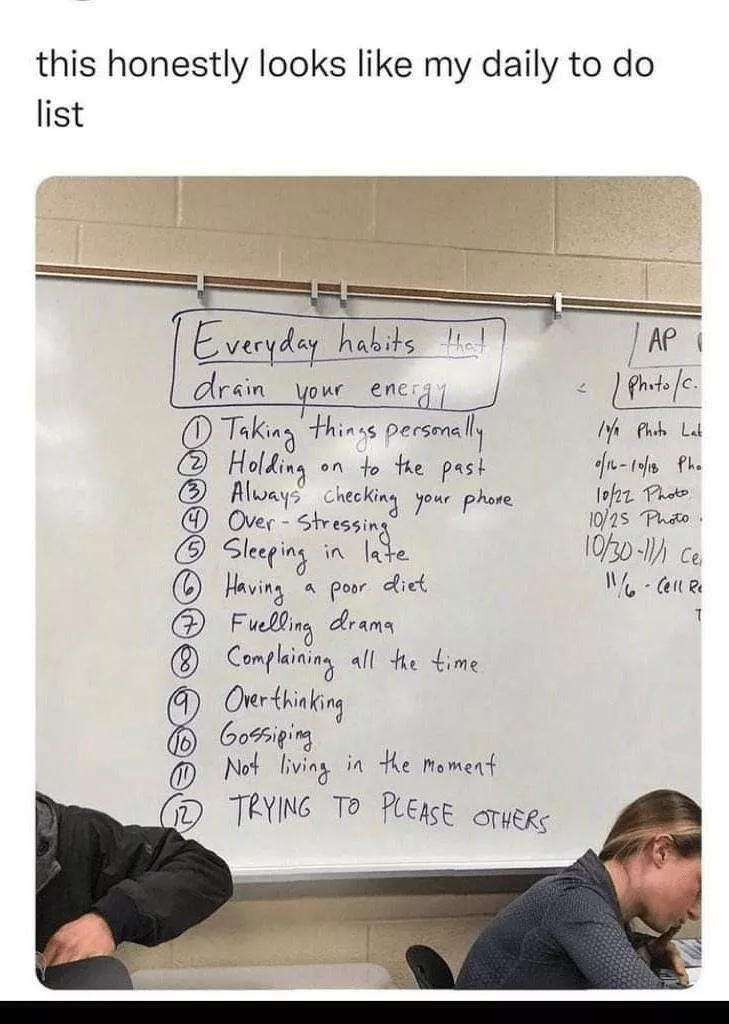 this honestly looks like my daily to do
list
Everyday habits that
drain your energy
① Taking things personally
② Holding on to the past
③ Always checking your phone
④ Over-stressing
⑤ Sleeping in late
⑥ Having a poor diet
⑦ Fuelling drama
⑧ Complaining all the time
⑨ Overthinking
⑩ Gossiping
⑪ Not living in the moment
⑫ TRYING TO PLEASE OTHERS
AP
Photo/c.
Photo Lab
10/18 Pho
10/22 Photo
10/25 Photo
10/30-11/1 Ce
11/6 - Cell Re
T